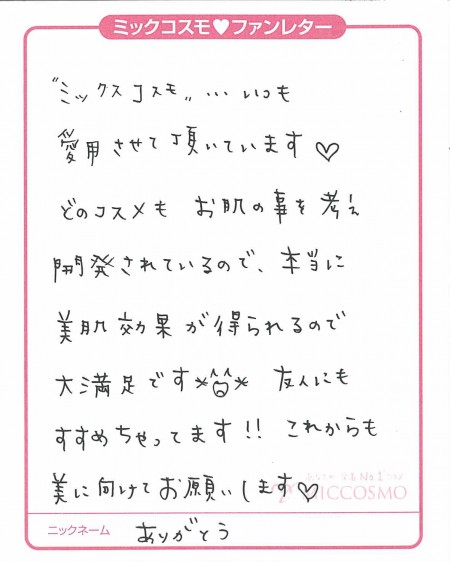 ミックコスモ♥ファンレター
"ミックスコスモ"…いつも
愛用させて頂いています♡
どのコスメも お肌の事を考え
開発されているので、本当に
美肌効果が得られるので
大満足です 友人にも
すすめちゃってます!! これからも
美に向けてお願いします♡
MICCOSMO
ニックネーム ありがとう